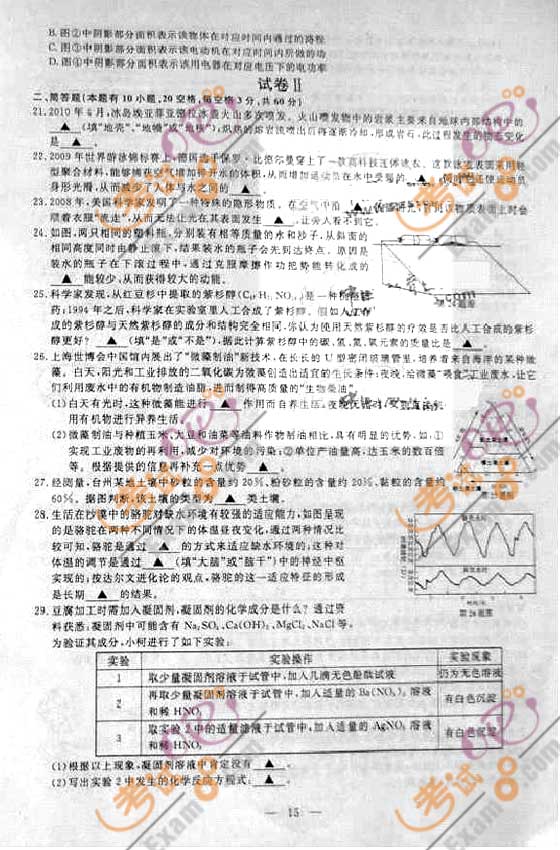 B. 图②中阴影部分面积表示该物体在对应时间内通过的路程
C. 图③中阴影部分面积表示该电动机在对应时间内所做的功
D. 图④中阴影部分面积表示该用电器在对应电压下的电功率
试卷Ⅱ
二、简答题(本题有10小题,20空格,每空格3分,共60分)
21. 2010年4月,冰岛埃亚菲亚德拉冰盖火山多次喷发。火山喷发物中的岩浆主要来自地球内部结构中的
▲ (填"地壳"、"地幔"或"地核");炽热的熔岩流喷出后将逐渐冷却,形成岩石,此过程发生的物态变化
是 ▲ 。
22. 2009年世界游泳锦标赛上,德国选手保罗·比德尔曼穿上了一款高科技连体泳衣。这款泳衣表面采用轻
型聚合材料,能够捕获空气增加排开水的体积,从而增加运动员在水中受到的 ▲ ,同时还使运动员
身形光滑,从而减少了人体与水之间的 ▲ 。
23. 2008年,美国科学家发明了一种特殊的隐形物质。在空气中沿 ▲ 传播
顺着衣服"流走",从而无法让光在其表面发生 ▲ ,让旁人看不到它。
24. 如图,两只相同的塑料瓶,分别装有相等质量的水和沙子,从斜面的
相同高度同时由静止滚下,结果装水的瓶子会先到达终点。原因是
装水的瓶子在下滚过程中,通过克服摩擦作功把势能转化成的
▲ 能较少,从而获得较大的动能。
第24题图
25. 科学家发现,从红豆杉中提取的紫杉醇
药;1994年之后,科学家在实验室里人工合成了紫杉醇。假如人工合
成的紫杉醇与天然紫杉醇的成分和结构完全相同,你认为使用天然紫杉醇的疗效是否比人工合成的紫杉
醇更好? ▲ (填"是"或"不是"),据此计算紫杉醇中的碳、氢、氮、氧元素的质量比是 ▲
26. 上海世博会中国馆内展出了"微藻制油"新技术,在长长的U型密闭玻璃管里,培养着来自海洋的某种微
藻。白天,阳光和工业排放的二氧化碳为微藻创造出适宜的生长条件;夜晚,给微藻"喂食"工业废水,让它
们利用废水中的有机物制造油脂,进而制得高质量的"生物柴油"。
(1)白天有光时,这种微藻能进行 ▲ 作用而自养生活。
用有机物进行异养生活。
(2)微藻制油与种植玉米、大豆和油菜等油料作物制油相比,具有明显的优势,如,①
实现工业废物的再利用,减少对环境的污染;②单位产油量高,达玉米的数百倍
等。根据提供的信息再补充一点优势 ▲ 。
27. 经测量,台州某地土壤中砂粒的含量约20%,粉砂粒的含量约20%,黏粒的含量约
60%。据图判断,该土壤的类型为 ▲ 类土壤。
28. 生活在沙漠中的骆驼对缺水环境有较强的适应能力,如图呈现
的是骆驼在两种不同情况下的体温昼夜变化,通过两种情况比
较可知,骆驼通过 ▲ 的方式来适应缺水环境的;这种对
体温的调节是通过 ▲ (填"大脑"或"脑干")中的神经中枢
实现的;按达尔文进化论的观点,骆驼的这一适应特征的形成
是长期 ▲ 的结果。
第28题图
29. 豆腐加工时需加入凝固剂,凝固剂的化学成分是什么?通过资
料获悉:凝固剂中可能含有Na₂SO₄、Ca(OH)₂、MgCl₂、NaCl等。
为验证其成分,小柯进行了如下实验:
实验 实验操作 实验现象
1 取少量凝固剂溶液于试管中,加入几滴无色酚酞试液 仍为无色溶液
2 再取少量凝固剂溶液于试管中,加入适量的Ba(NO₃)₂溶液和稀HNO₃ 有白色沉淀
3 取实验2中的适量滤液于试管中,加入适量的AgNO₃溶液和稀HNO₃ 有白色沉淀
(1)根据以上现象,凝固剂溶液中肯定没有 ▲ 。
(2)写出实验2中发生的化学反应方程式: ▲ 。
— 15 —